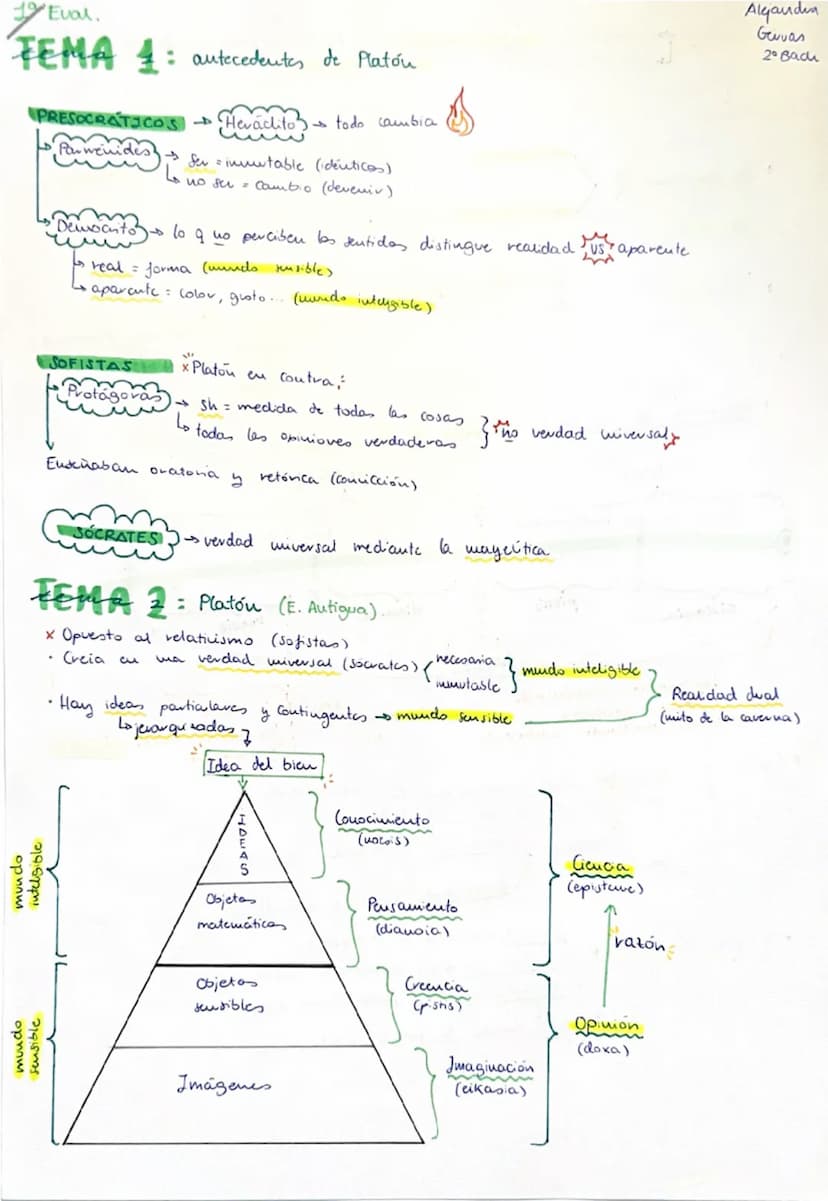 1ª Eval.
Alejandra
Gervas
2º Bach
TEMA 1: antecedentes de Platón
PRESOCRÁTICOS → Heráclito → todo cambia
Parménides → Ser = inmutable (idénticos)
no ser = cambio (devenir)
Demócrito → lo q no perciben los sentidos distingue realidad VS aparente
real = forma (mundo sensible)
aparente = color, gusto... (mundo inteligible)
SOFISTAS x Platón en contra:
Protágoras → sh = medida de todas las cosas
todas las opiniones verdaderas } no verdad universal
Enseñaban oratoria y retórica (convicción)
SÓCRATES → verdad universal mediante la mayeútica
TEMA 2: Platón (E. Antigua)
x Opuesto al relativismo (sofistas)
· Creía en una verdad universal (sócrates) { necesaria
inmutable } mundo inteligible
Realidad dual
(mito de la caverna)
· Hay ideas particulares y contingentes → mundo sensible
↳ jerarquizadas
Idea del bien
IDEAS
Conocimiento
(noesis)
mundo
inteligible
Ciencia
(episteme)
Objetos
matemáticos
Pensamiento
(dianoia)
razón
Objetos
sensibles
Creencia
(pistis)
mundo
sensible
Opinión
(doxa)
Imágenes
Imaginación
(eikasia)